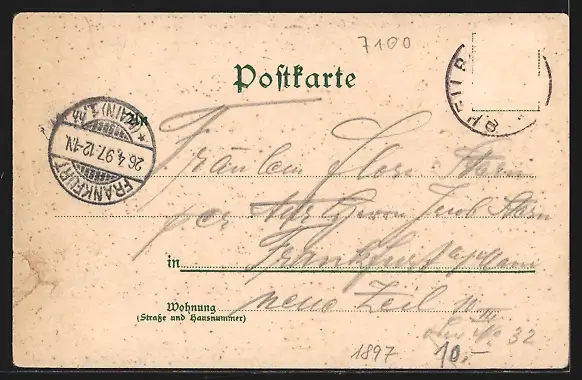 7100
Postkarte
HEILB
FRANKFURT
(MAIN) 1.
26.4.97.12-1N.
Fräulein Flora Stern
per Adr. Herrn Jacob Stern
in Frankfurt a/Main
Wohnung neue Zeil
(Straße und Hausnummer)
No 32
1897 10.-